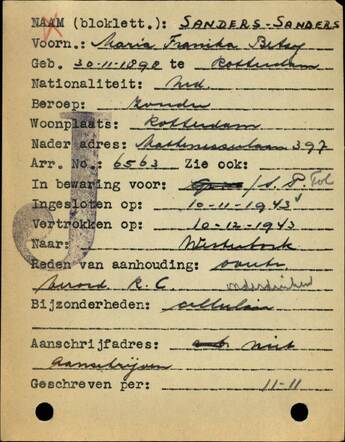 NAAM (bloklett.): SANDERS-SANDERS
Voorn.: Maria Francina Betsy
Geb. 30-11-1898 te Rotterdam
Nationaliteit: Ned.
Beroep: zonder
Woonplaats: Rotterdam
Nader adres: Mathenesserlaan 397
Arr. No.: 6563 Zie ook:
In bewaring voor: /S. P.
Ingesloten op: 10-11-1943
Vertrokken op: 10-12-1943
Naar: Westerbork
Reden van aanhouding: overtr.
verord. R.C. onderduiken
Bijzonderheden: cellulair
Aanschrijfadres: niet
aanschrijven
Geschreven per: 11-11
J